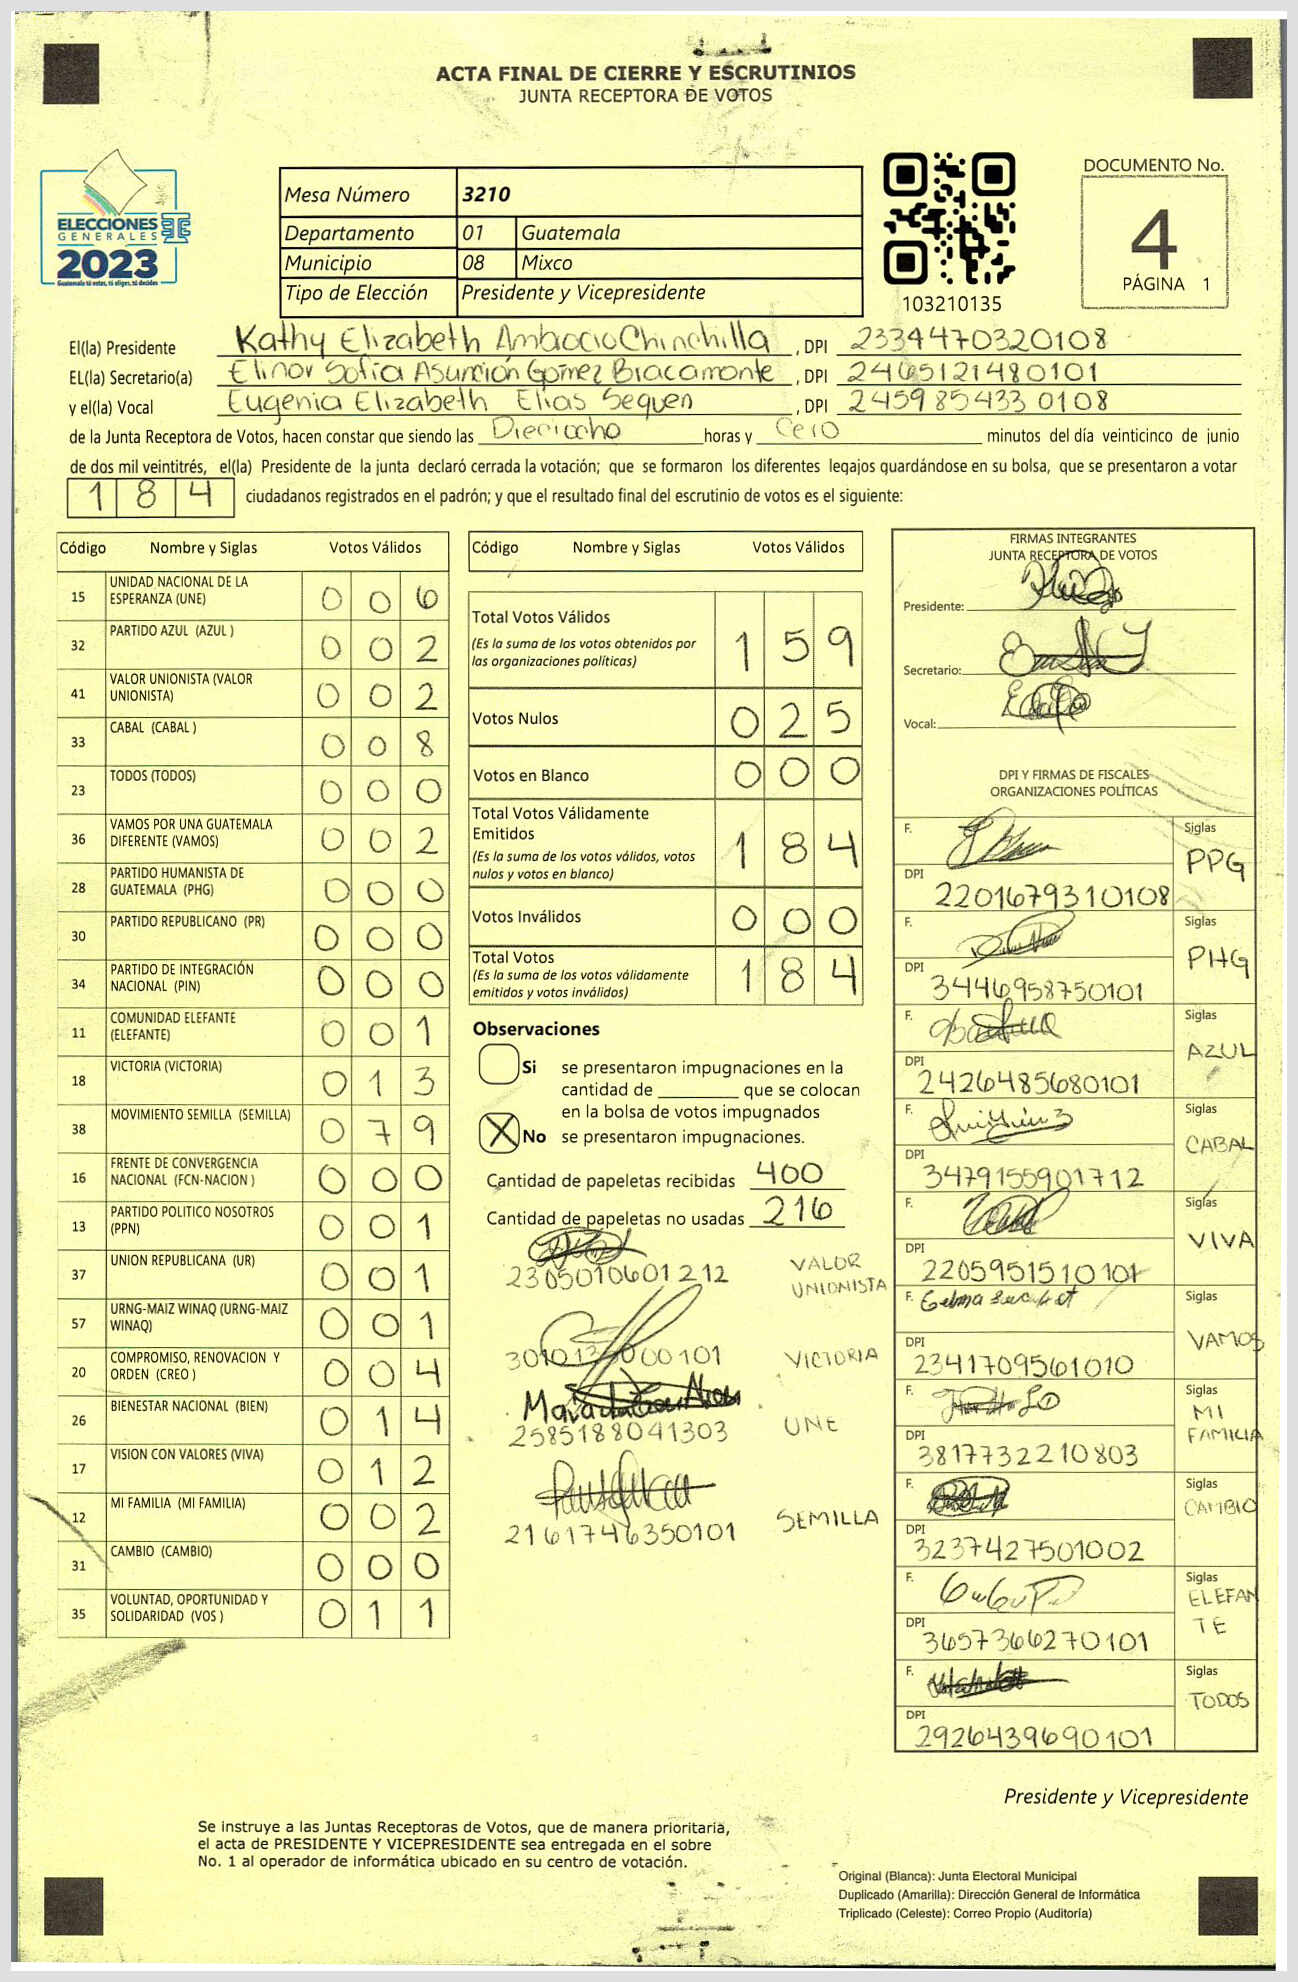 ACTA FINAL DE CIERRE Y ESCRUTINIOS
JUNTA RECEPTORA DE VOTOS
ELECCIONES
GENERALES
2023
Guatemala tú votas, tú eliges, tú decides
Mesa Número 3210
Departamento 01 Guatemala
Municipio 08 Mixco
Tipo de Elección Presidente y Vicepresidente
103210135
DOCUMENTO No.
4
PÁGINA 1
El(la) Presidente Kathy Elizabeth Ambrocio Chinchilla, DPI 2334470320108
EL(la) Secretario(a) Elinor Sofía Asunción Gómez Bracamonte, DPI 2465121480101
y el(la) Vocal Eugenia Elizabeth Elias Sequen, DPI 2459854330108
de la Junta Receptora de Votos, hacen constar que siendo las Dieciocho horas y Cero minutos del día veinticinco de junio
de dos mil veintitrés, el(la) Presidente de la junta declaró cerrada la votación; que se formaron los diferentes legajos guardándose en su bolsa, que se presentaron a votar
184 ciudadanos registrados en el padrón; y que el resultado final del escrutinio de votos es el siguiente:
Código Nombre y Siglas Votos Válidos
15 UNIDAD NACIONAL DE LA ESPERANZA (UNE) 006
32 PARTIDO AZUL (AZUL ) 002
41 VALOR UNIONISTA (VALOR UNIONISTA) 002
33 CABAL (CABAL ) 008
23 TODOS (TODOS) 000
36 VAMOS POR UNA GUATEMALA DIFERENTE (VAMOS) 002
28 PARTIDO HUMANISTA DE GUATEMALA (PHG) 000
30 PARTIDO REPUBLICANO (PR) 000
34 PARTIDO DE INTEGRACIÓN NACIONAL (PIN) 000
11 COMUNIDAD ELEFANTE (ELEFANTE) 001
18 VICTORIA (VICTORIA) 013
38 MOVIMIENTO SEMILLA (SEMILLA) 079
16 FRENTE DE CONVERGENCIA NACIONAL (FCN-NACION ) 000
13 PARTIDO POLITICO NOSOTROS (PPN) 001
37 UNION REPUBLICANA (UR) 001
57 URNG-MAIZ WINAQ (URNG-MAIZ WINAQ) 001
20 COMPROMISO, RENOVACION Y ORDEN (CREO ) 004
26 BIENESTAR NACIONAL (BIEN) 014
17 VISION CON VALORES (VIVA) 012
12 MI FAMILIA (MI FAMILIA) 002
31 CAMBIO (CAMBIO) 000
35 VOLUNTAD, OPORTUNIDAD Y SOLIDARIDAD (VOS ) 011
Código Nombre y Siglas Votos Válidos
Total Votos Válidos 159
(Es la suma de los votos obtenidos por
las organizaciones políticas)
Votos Nulos 025
Votos en Blanco 000
Total Votos Válidamente
Emitidos 184
(Es la suma de los votos válidos, votos
nulos y votos en blanco)
Votos Inválidos 000
Total Votos 184
(Es la suma de los votos válidamente
emitidos y votos inválidos)
Observaciones
Si se presentaron impugnaciones en la
cantidad de ________ que se colocan
en la bolsa de votos impugnados
X No se presentaron impugnaciones.
Cantidad de papeletas recibidas 400
Cantidad de papeletas no usadas 216
2305010601212 VALOR UNIONISTA
000101 VICTORIA
2585188041303 UNE
2161746350101 SEMILLA
FIRMAS INTEGRANTES
JUNTA RECEPTORA DE VOTOS
Presidente:
Secretario:
Vocal:
DPI Y FIRMAS DE FISCALES
ORGANIZACIONES POLÍTICAS
F. Siglas
DPI 2201679310108 PPG
F. Siglas
DPI 3446958750101 PHG
F. Siglas
DPI 2426485680101 AZUL
F. Siglas
DPI 3479155901712 CABAL
F. Siglas
DPI 2205951510101 VIVA
F. Siglas
DPI 2341709561010 VAMOS
F. Siglas
DPI 3817732210803 MI FAMILIA
F. Siglas
DPI 3237427501002 CAMBIO
F. Siglas
DPI 3657366270101 ELEFANTE
F. Siglas
DPI 2926439690101 TODOS
Presidente y Vicepresidente
Se instruye a las Juntas Receptoras de Votos, que de manera prioritaria,
el acta de PRESIDENTE Y VICEPRESIDENTE sea entregada en el sobre
No. 1 al operador de informática ubicado en su centro de votación.
Original (Blanca): Junta Electoral Municipal
Duplicado (Amarilla): Dirección General de Informática
Triplicado (Celeste): Correo Propio (Auditoría)